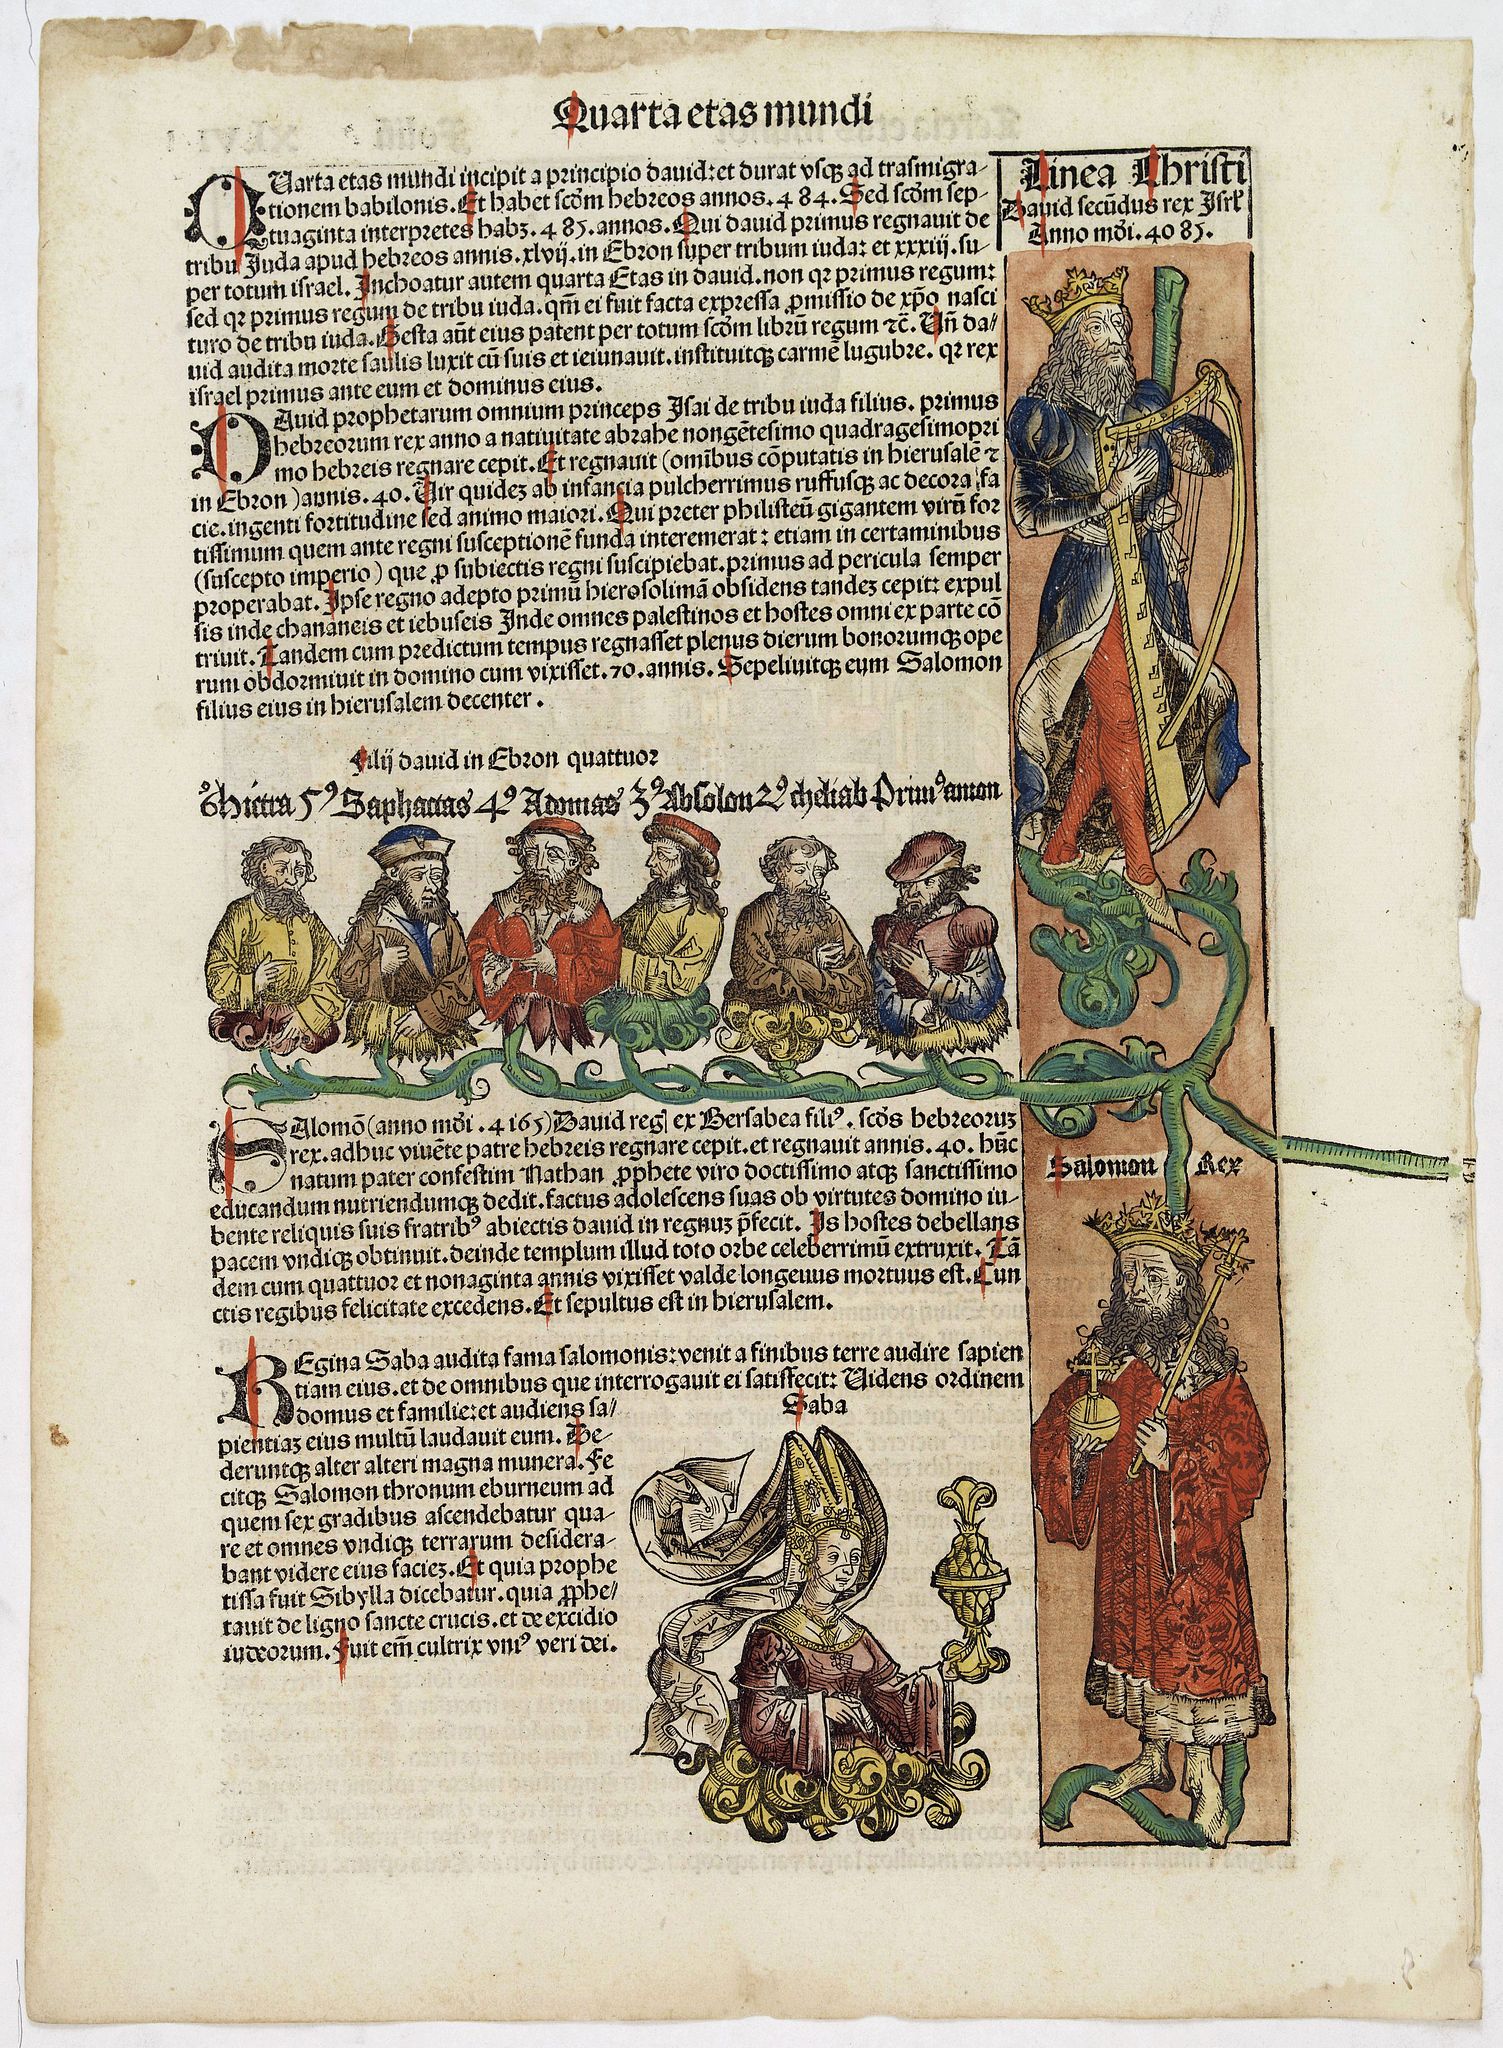 Quarta etas mundi
QVarta etas mundi incipit a principio dauid: et durat vsqꝫ ad trasmigra-
tionem babilonis. Et habet scd̄m hebreos annos. 484. Sed scd̄m sep-
tuaginta interpretes habꝫ. 485. annos. Qui dauid primus regnauit de
tribu Juda apud hebreos annis. xlvij. in Ebron super tribum iuda: et xxxiij. su-
per totum israel. Inchoatur autem quarta Etas in dauid. non qꝛ primus regum:
sed qꝛ primus regum de tribu iuda. qm̄ ei fuit facta expressa ꝓmissio de xp̄o nasci
turo de tribu iuda. Gesta aūt eius patent per totum scd̄m librū regum ⁊c̄. Vn̄ da-
uid audita morte saulis luxit cū suis et ieiunauit. instituitqꝫ carmē lugubre. qꝛ rex
israel primus ante eum et dominus eius.
DAuid prophetarum omnium princeps Isai de tribu iuda filius. primus
hebreorum rex anno a natiuitate abrahe nongētesimo quadragesimopri
mo hebreis regnare cepit. Et regnauit (omībus cōputatis in hierusalē ⁊
in Ebron) annis. 40. Vir quideꝫ ab infancia pulcherrimus ruffusqꝫ ac decora fa
cie. ingenti fortitudine sed animo maiori. Qui preter philisteū gigantem virū for
tissimum quem ante regni susceptionē funda interemerat: etiam in certaminibus
(suscepto imperio) que ꝓ subiectis regni suscipiebat. primus ad pericula semper
properabat. Ipse regno adepto primū hierosolimā obsidens tandeꝫ cepit: expul
sis inde chananeis et iebuseis Inde omnes palestinos et hostes omni ex parte cō
triuit. Tandem cum predictum tempus regnasset plenus dierum bonorumqꝫ ope
rum obdormiuit in domino cum vixisset. 70. annis. Sepeliuitqꝫ eum Salomon
filius eius in hierusalem decenter.
Linea Christi
Dauid secūdus rex Isrl̄
Anno mōi. 4085.
Filij dauid in Ebron quattuor
6⁹ hictra 5⁹ Saphacias 4⁹ Adonias 3⁹ Absolon 2⁹ cheliab Prim⁹ amon
SAlomō (anno mōi. 4165) Dauid reḡ ex Bersabea fili⁹. scd̄s hebreoruꝫ
rex. adhuc viuēte patre hebreis regnare cepit. et regnauit annis. 40. hūc
natum pater confestim Nathan ꝓphete viro doctissimo atqꝫ sanctissimo
educandum nutriendumqꝫ dedit. factus adolescens suas ob virtutes domino iu-
bente reliquis suis fratrib⁹ abiectis dauid in regnuꝫ p̄fecit. Is hostes debellans
pacem vndiqꝫ obtinuit. deinde templum illud toto orbe celeberrimū extruxit. Tā
dem cum quattuor et nonaginta annis vixisset valde longeuus mortuus est. Cun
ctis regibus felicitate excedens. Et sepultus est in hierusalem.
Salomon Rex
REgina Saba audita fama salomonis: venit a finibus terre audire sapien
tiam eius. et de omnibus que interrogauit ei satisfecit: Videns ordinem
domus et familie: et audiens sa/
pientiaꝫ eius multū laudauit eum. De-
deruntqꝫ alter alteri magna munera. Fe
citqꝫ Salomon thronum eburneum ad
quem sex gradibus ascendebatur qua-
re et omnes vndiqꝫ terrarum desidera-
bant videre eius facieꝫ. Et quia prophe
tissa fuit Sibylla dicebatur. quia ꝓphe-
tauit de ligno sancte crucis. et de excidio
iudeorum. Fuit em̄ cultrix vni⁹ veri dei.
Saba